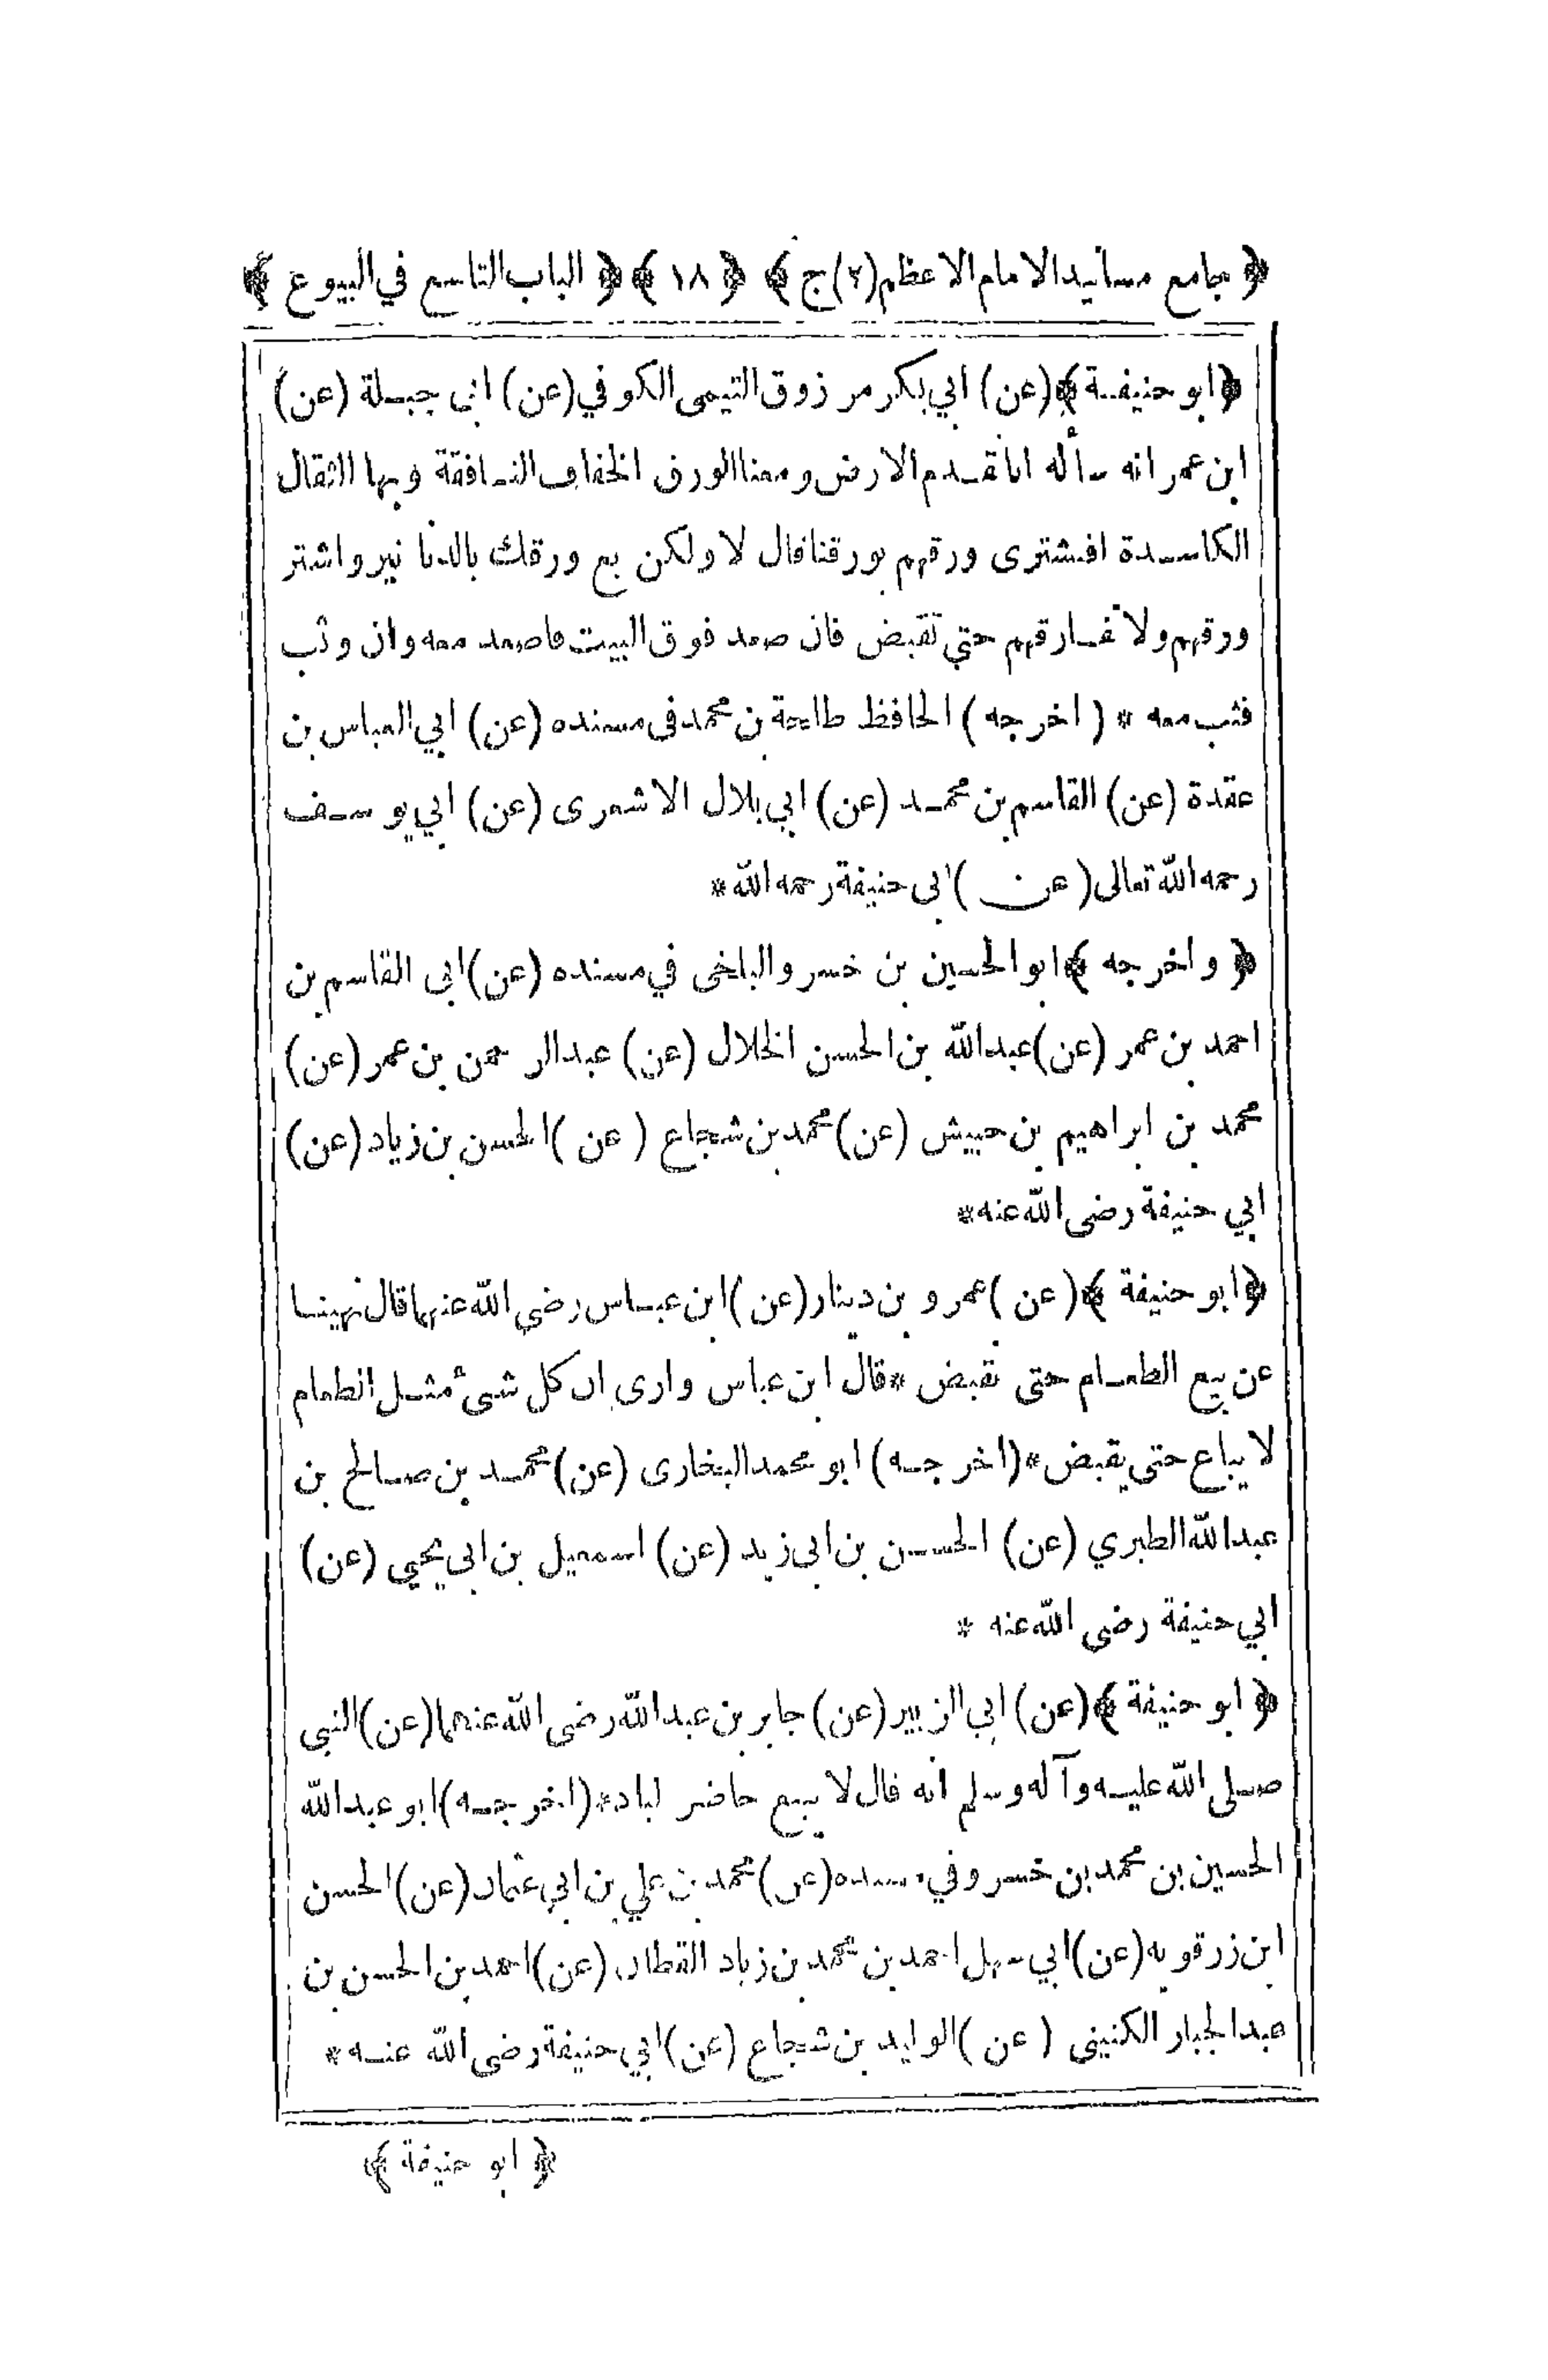 ﴿ جامع مسانيد الامام الاعظم (٢) ج ﴾ ﴿ ١٨ ﴾ ﴿ الباب التاسع في البيوع ﴾
﴿ ابو حنيفة ﴾ (عن) ابي بكر مرزوق التيمى الكوفي (عن) ابى جبلة (عن)
ابن عمر انه سأله انا نقدم الارض ومعنا الورق الخفاف النافقة وبها الثقال
الكاسدة افنشترى ورقهم بورقنا فال لا ولكن بع ورقك بالدنا نير واشتر
ورقهم ولا تفارقهم حتي تقبض فان صعد فوق البيت فاصعد معه وان وثب
فثب معه * ( اخرجه ) الحافظ طلحة بن محمد فى مسنده (عن) ابي العباس بن
عقدة (عن) القاسم بن محمد (عن) ابي بلال الاشعرى (عن) ابي يوسف
رحمه الله تعالى (عن) ابى حنيفة رحمه الله *
﴿ واخرجه ﴾ ابو الحسين بن خسرو البلخى في مسنده (عن) ابى القاسم بن
احمد بن عمر (عن) عبد الله بن الحسن الخلال (عن) عبد الرحمن بن عمر (عن)
محمد بن ابراهيم بن حبيش (عن) محمد بن شجاع (عن) الحسن بن زياد (عن)
ابي حنيفة رضى الله عنه *
﴿ ابو حنيفة ﴾ (عن) عمرو بن دينار (عن) ابن عباس رضي الله عنهما قال نهينا
عن بيع الطعام حتى نقبض * قال ابن عباس وارى ان كل شئ مثل الطعام
لا يباع حتى يقبض * (اخرجه) ابو محمد البخارى (عن) محمد بن صالح بن
عبد الله الطبري (عن) الحسن بن ابى زيد (عن) اسمعيل بن ابى يحيي (عن)
ابي حنيفة رضى الله عنه *
﴿ ابو حنيفة ﴾ (عن) ابي الزبير (عن) جابر بن عبد الله رضى الله عنهما (عن) النبى
صلى الله عليه وآله وسلم انه قال لا يبيع حاضر لباد * (اخرجه) ابو عبد الله
الحسين بن محمد بن خسرو في مسنده (عن) محمد بن علي بن ابي عثمان (عن) الحسن
ابن زرقويه (عن) ابي سهل احمد بن محمد بن زياد القطان (عن) احمد بن الحسن بن
عبد الجبار الكنينى (عن) الوليد بن شجاع (عن) ابي حنيفة رضى الله عنه *
﴿ ابو حنيفة ﴾